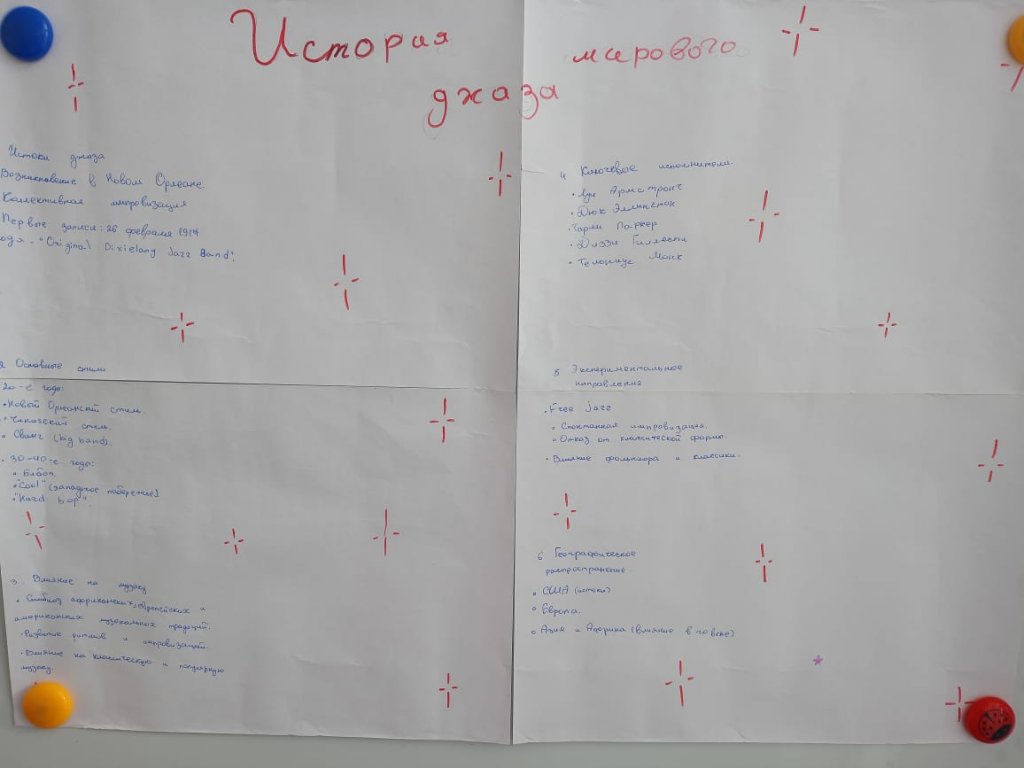 История мирового
джаза
Истоки джаза
Возникновение в Новом Орлеане
Коллективная импровизация
Первые записи: 26 февраля 1917
года - "Original Dixielang Jazz Band".
2 Основные стили
20-е годы:
• Новой Орлеанский стиль.
• Чикагский стиль
• Свинг (big band).
• 30-40-е годы:
• Бибоп
• "Cool" (западное поберение)
• "Hard bop".
3. Влияние на музыку
• Симбиоз африканских, европейских и
американских музыкальных традиций.
• Развитие ритмов и импровизаций.
• Влияние на классическую и популярную
музыку.
4 Ключевые исполнители.
• Луи Армстронг
• Дюк Эллингтон
• Чарли Паркер
• Диззи Гиллеспи
• Телониус Монк
5 Экспериментальное
направления
• Free jazz
• Спонтанная импровизация.
• Отказ от классической формы
• Влияние фольклора и классики.
6 Географическое
распространение.
• США (истоки)
• Европа.
• Азия и Африка (влияние в 20 веке)